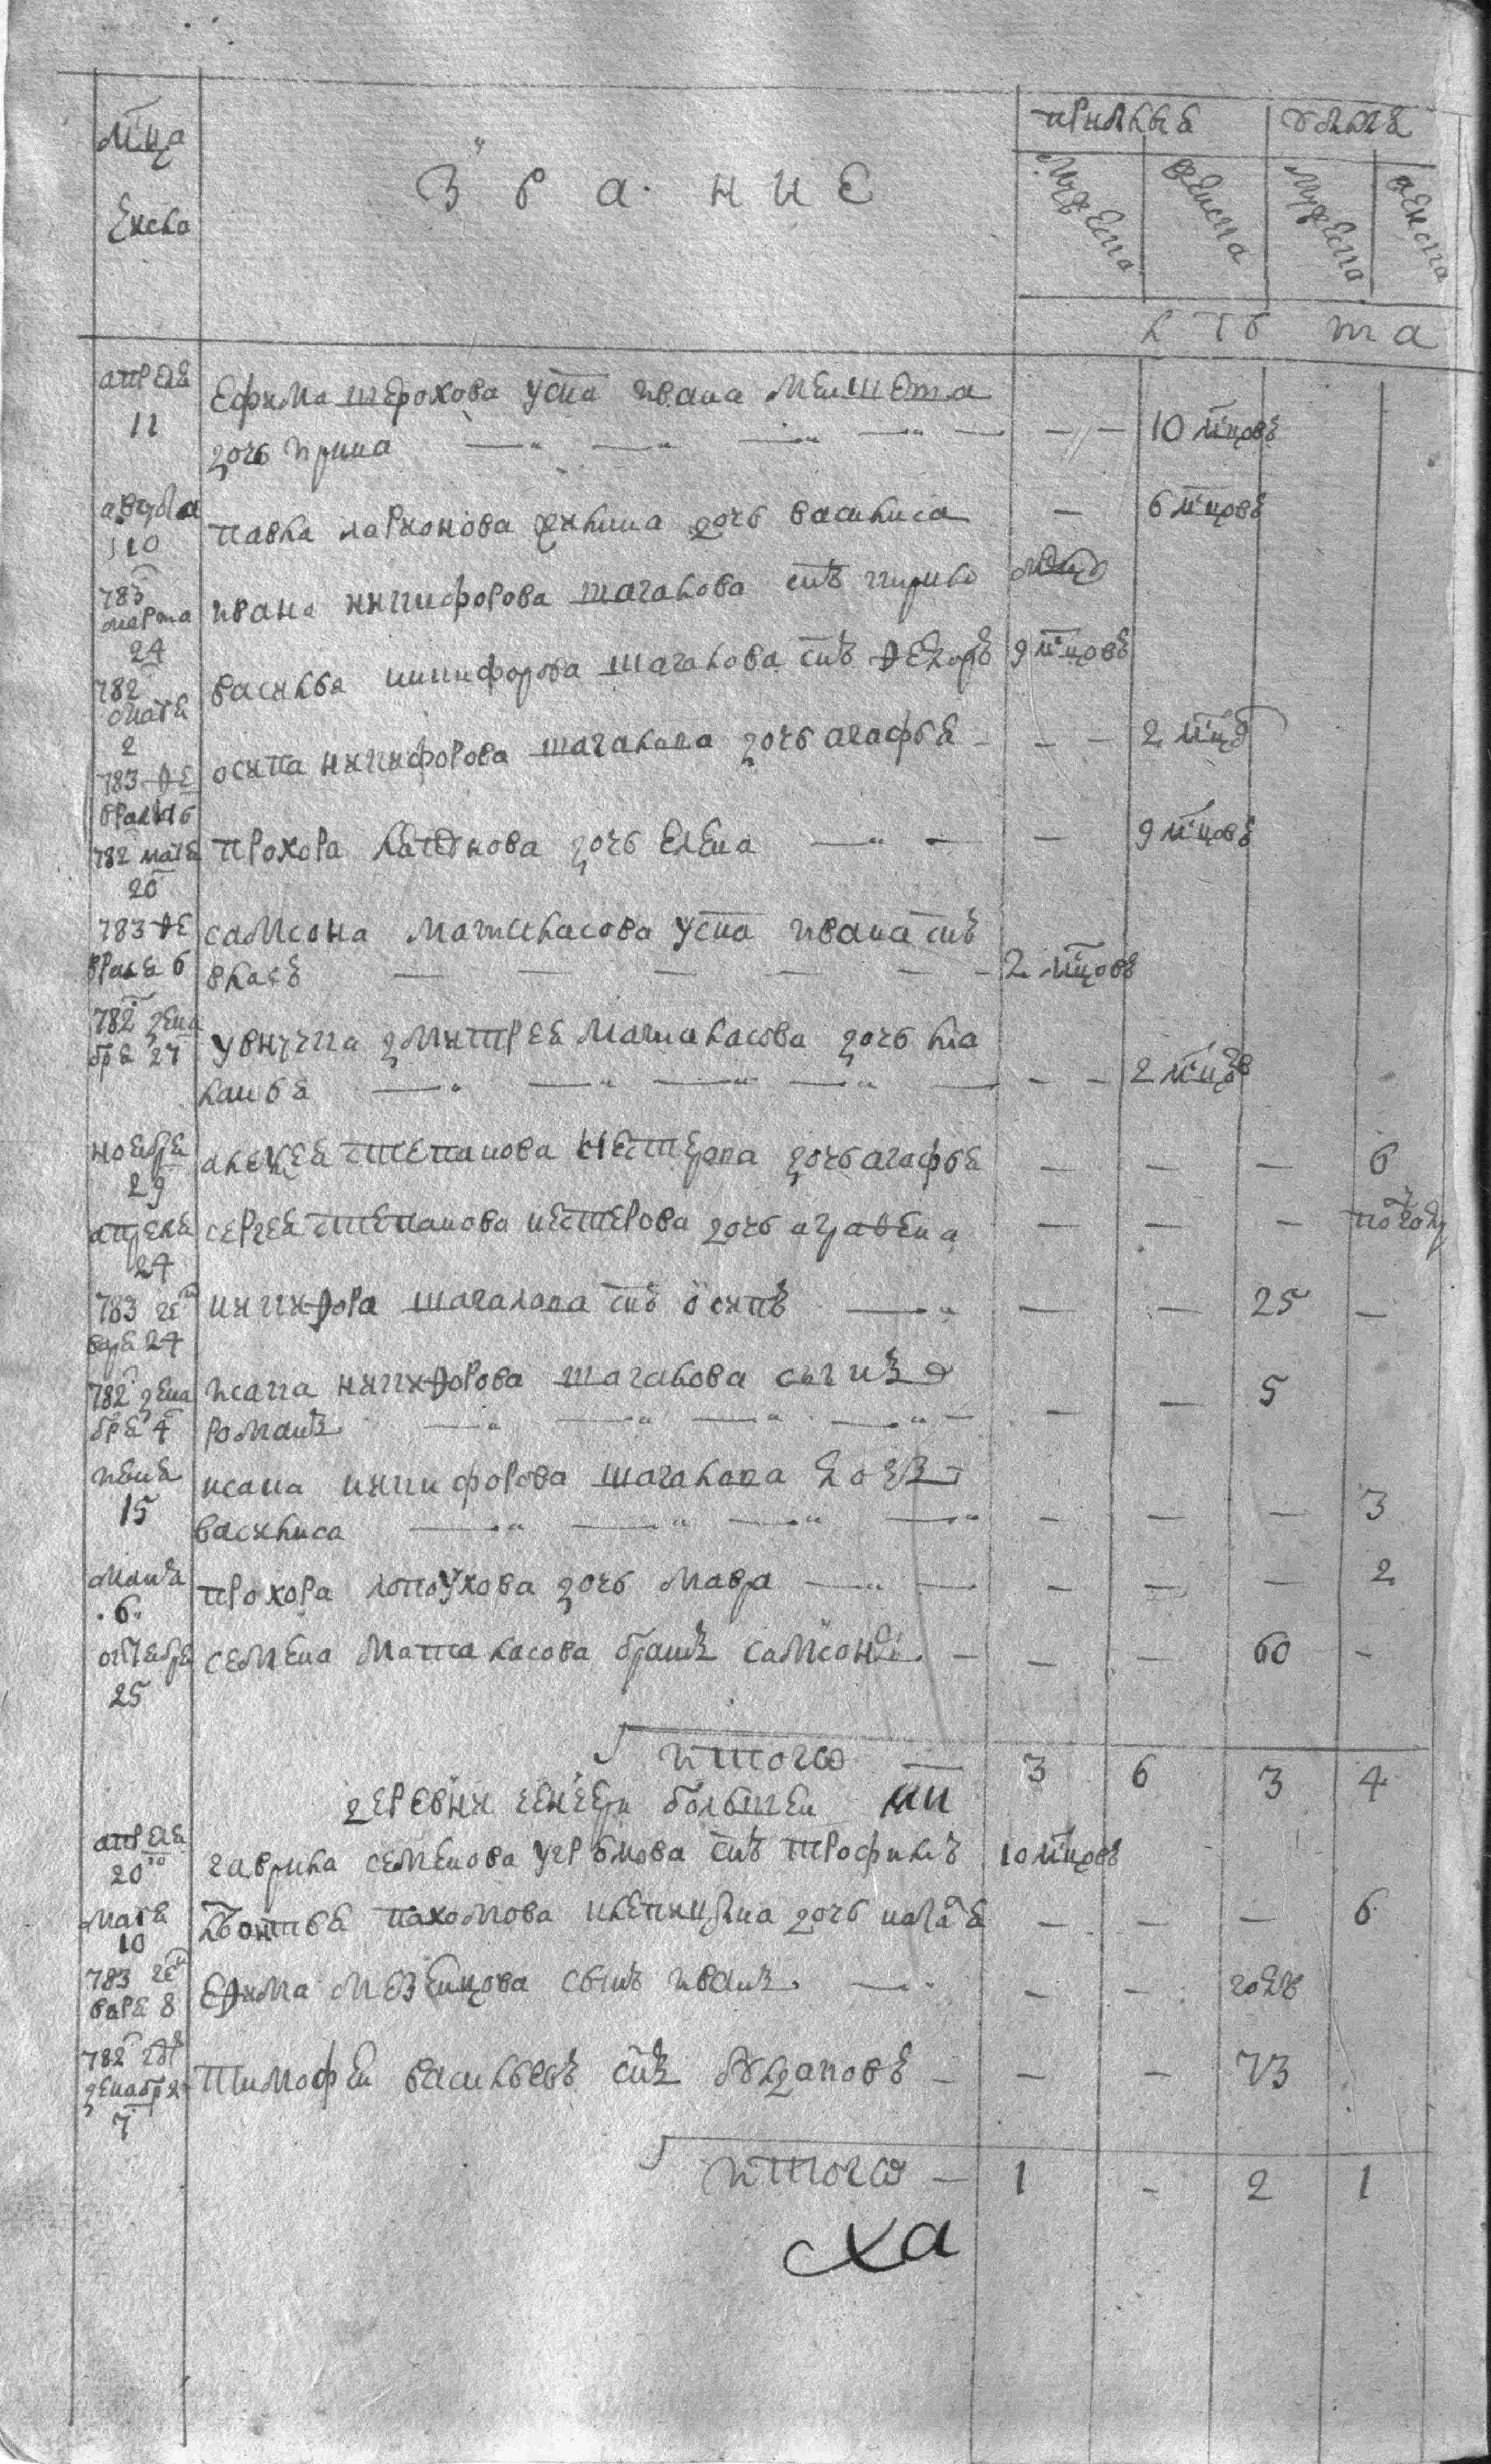 мца
числа
З в а н и е
прибыль
убыль
мужеска
женска
мужеска
женска
л ѣ та
апреля
11
Ефима терохова у сна ивана
дочь ирина — — — — — — — 10 мцовъ
августа
10
павла ларионова дочь василиса — 6 мцовъ
783
марта
24
ивана никифорова шагалова снъ
782
маія
2
василья никифорова шагалова снъ федоръ 9 мцовъ
783 фе
враля 6
осипа никифорова шагалова дочь агафья — — — 2 мца
782 маія
20
прохора дочь елена — — — 9 мцовъ
783 фе
враля 6
самсона маталасова у сна ивана снъ
власъ — — — — — — 2 мцовъ
782 дека
бря 27
у внучка дмитрея маталасова дочь
— — — — — — — 2 мцовъ
ноября
29
алексея степанова нестерова дочь агафья — — — 6
апреля
24
сергея степанова нестерова дочь аграфена — — — по году
783 ген
варя 24
никифора шагалова снъ осипъ — — — 25 —
782 дека
бря 4
исака никифорова шагалова сынъ
романъ — — — — — — 5
июня
15
исака никифорова шагалова дочь
василиса — — — — — — — 3
маия
6
прохора лопоухова дочь мавра — — — — — 2
октября
25
семена маталасова братъ самсонъ — — — 60 —
итого — 3 6 3 4
деревни большей
апреля
20
гаврила семенова угрюмова снъ трофимъ 10 мцовъ
маія
10
пахомова дочь — — — 6
783 ген
варя 8
ефима мезенцова сынъ иванъ — — — годъ
782 году
декабря
7
тимофей васильевъ снъ — — — 73
итого — 1 — 2 1
ха